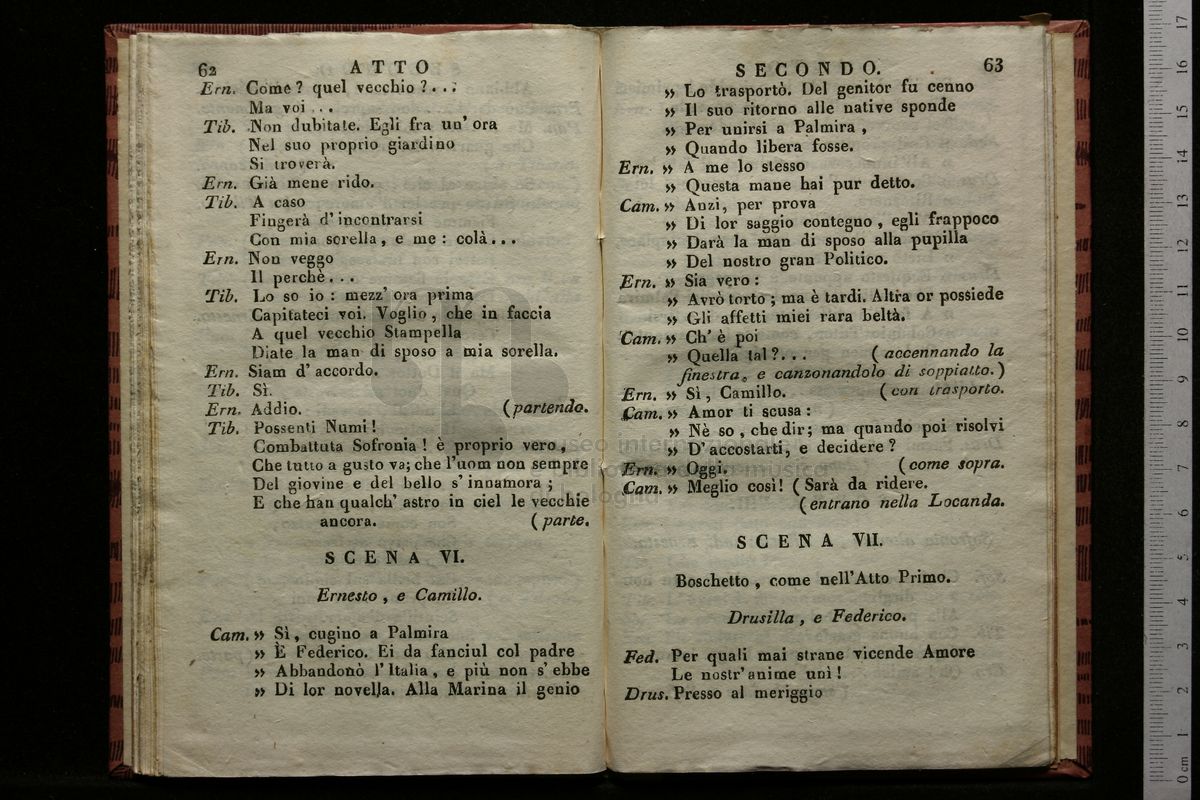 62 ATTO
Ern. Come? quel vecchio?...
Ma voi...
Tib. Non dubitate. Egli fra un' ora
Nel suo proprio giardino
Si troverà.
Ern. Già mene rido.
Tib. A caso
Fingerà d' incontrarsi
Con mia sorella, e me: colà...
Ern. Non veggo
Il perchè...
Tib. Lo so io: mezz' ora prima
Capitateci voi. Voglio, che in faccia
A quel vecchio Stampella
Diate la man di sposo a mia sorella.
Ern. Siam d' accordo.
Tib. Sì.
Ern. Addio. (partendo.
Tib. Possenti Numi!
Combattuta Sofronia! è proprio vero,
Che tutto a gusto va; che l'uom non sempre
Del giovine e del bello s' innamora;
E che han qualch' astro in ciel le vecchie
ancora. (parte.
SCENA VI.
Ernesto, e Camillo.
Cam. » Sì, cugino a Palmira
» È Federico. Ei da fanciul col padre
» Abbandonò l' Italia, e più non s' ebbe
» Di lor novella. Alla Marina il genio
SECONDO. 63
» Lo trasportò. Del genitor fu cenno
» Il suo ritorno alle native sponde
» Per unirsi a Palmira,
» Quando libera fosse.
Ern. » A me lo stesso
» Questa mane hai pur detto.
Cam. » Anzi, per prova
» Di lor saggio contegno, egli frappoco
» Darà la man di sposo alla pupilla
» Del nostro gran Politico.
Ern. » Sia vero:
» Avrò torto; ma è tardi. Altra or possiede
» Gli affetti miei rara beltà.
Cam. » Ch' è poi
» Quella tal?... (accennando la
finestra, e canzonandolo di soppiatto.)
Ern. » Sì, Camillo. (con trasporto.
Cam. » Amor ti scusa:
» Nè so, che dir; ma quando poi risolvi
» D' accostarti, e decidere?
Ern. » Oggi. (come sopra.
Cam. » Meglio così! (Sarà da ridere.
(entrano nella Locanda.
SCENA VII.
Boschetto, come nell'Atto Primo.
Drusilla, e Federico.
Fed. Per quali mai strane vicende Amore
Le nostr' anime unì!
Drus. Presso al meriggio
museo internazionale
biblioteca della musica
bologna
0 cm 1 2 3 4 5 6 7 8 9 10 11 12 13 14 15 16 17